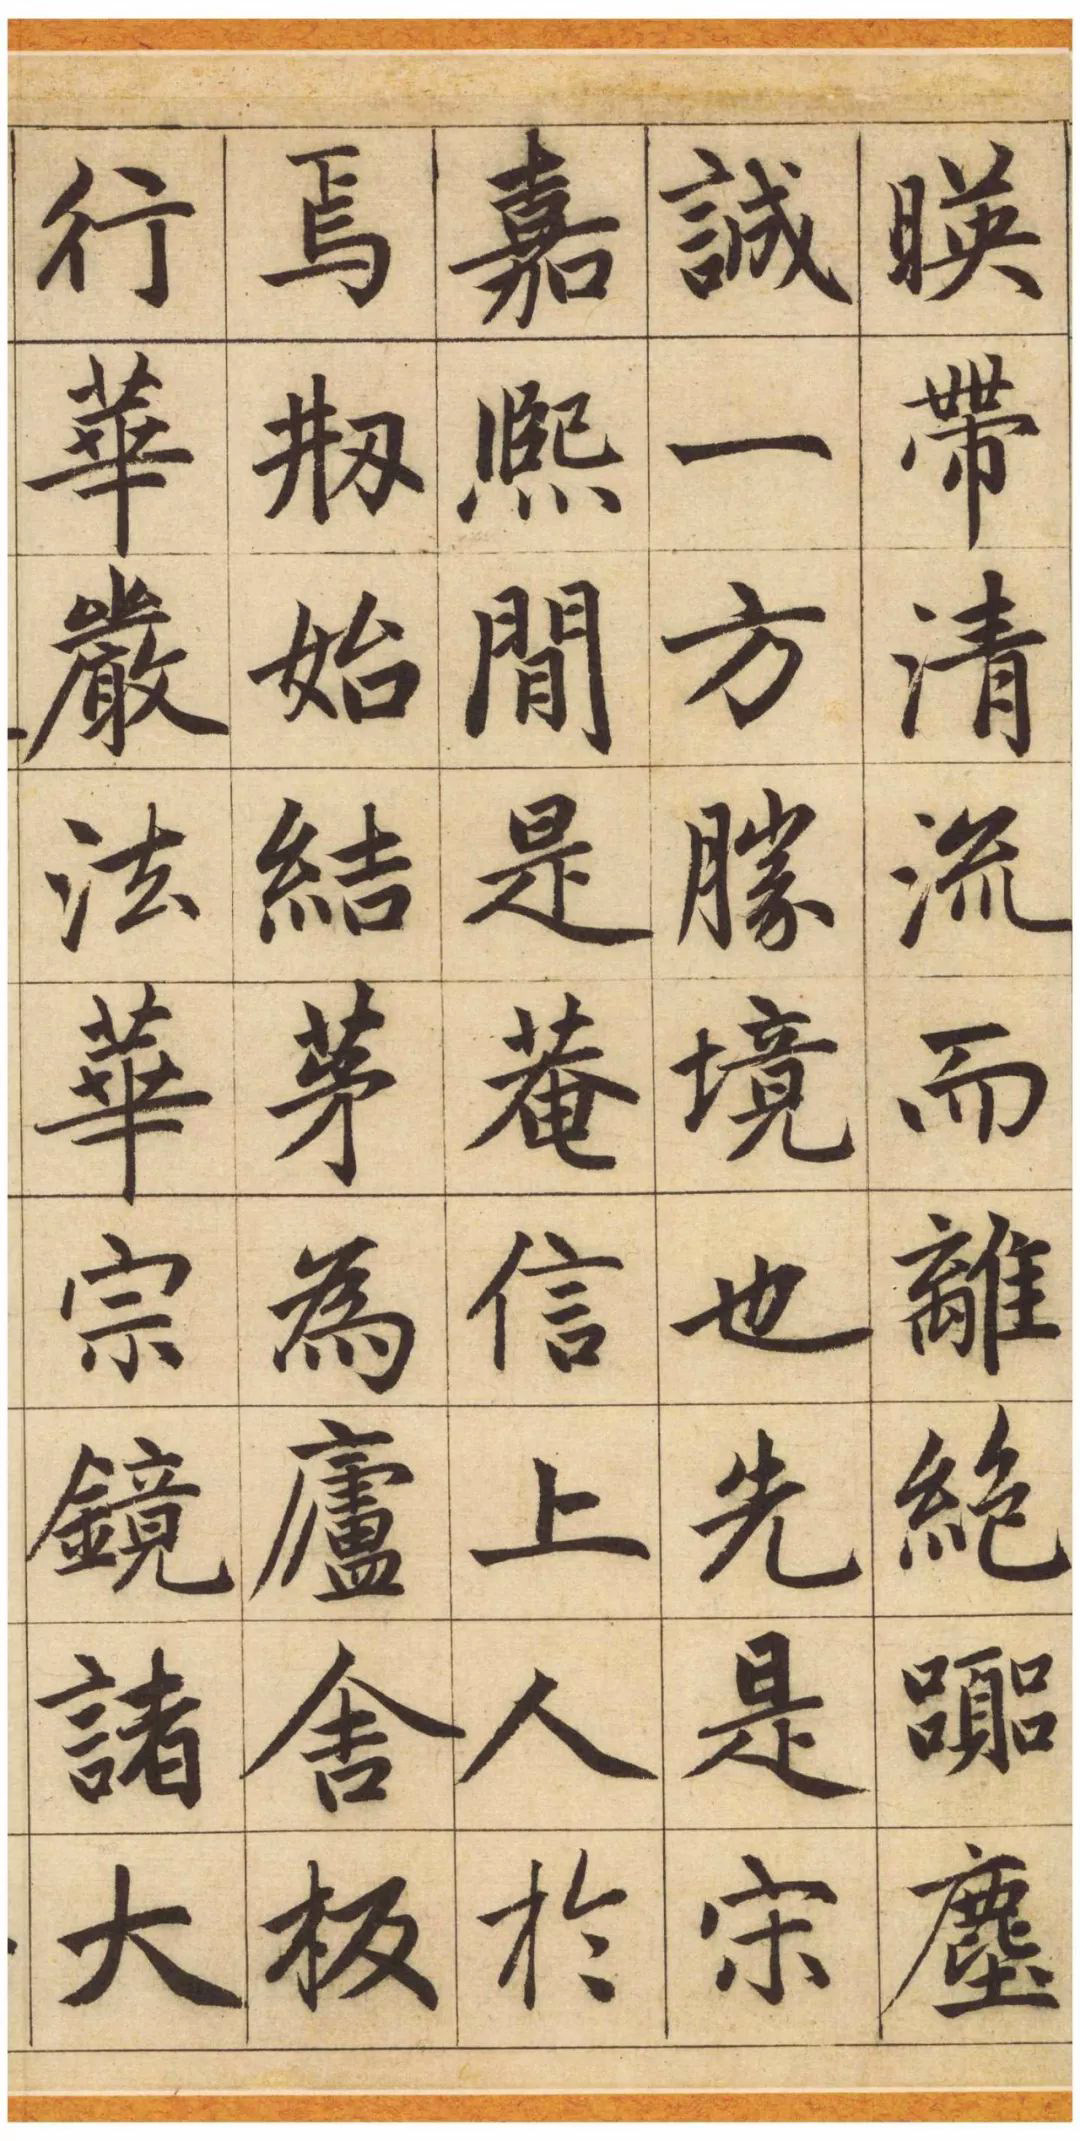 暎帶清流而離絕囂塵
誠一方勝境也先是宋
嘉熙間是菴信上人於
焉剙始結茅為廬舍板
行華嚴法華宗鏡諸大